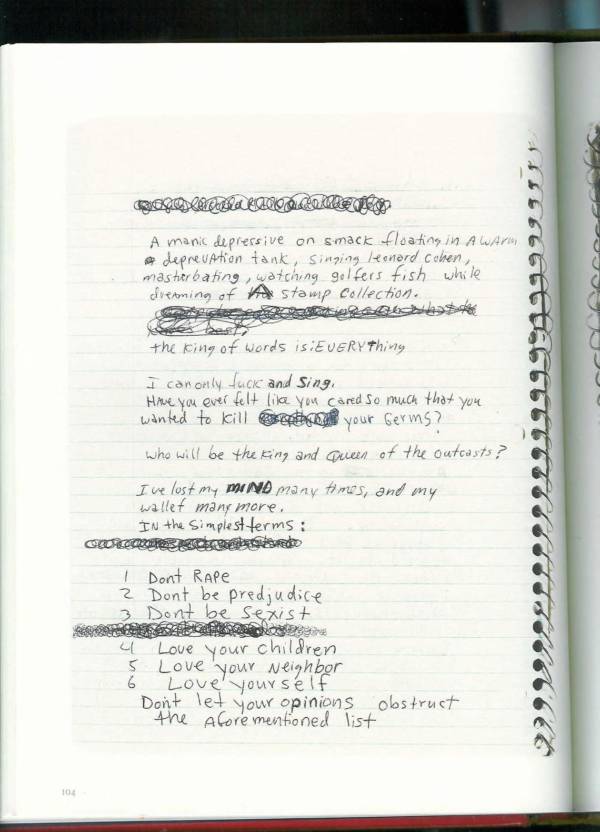 A manic depressive on smack floating in A wArm
depreuAtion tank, singing leonard cohen,
masterbating, watching golfers fish while
dreaming of A stamp collection.
the King of words is: EVERYthing
I can only fuck and Sing.
HAve you ever felt like you cared so much that you
wanted to kill your Germs?
Who will be the King and Queen of the outcasts?
I've lost my MIND many times, and my
wallet many more.
IN the simplest terms:
1 Dont RApe
2 Dont be predjudice
3 Dont be Sexist
4 Love your children
5 Love your Neighbor
6 Love yourself
Don't let your opinions obstruct
the Aforementioned list
104